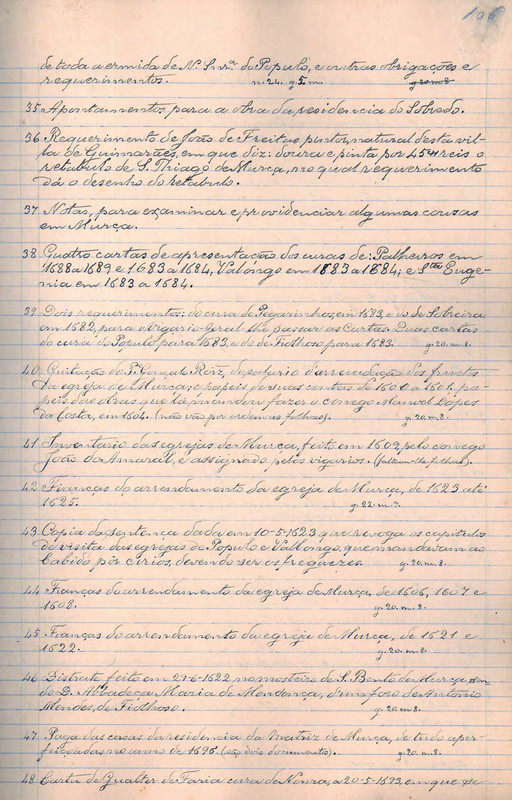 106
de toda a ermida de N. Snrª. do Populo, e outras obrigações e
requerimentos. n. 24. g. 5. m.
35 Apontamentos, para a obra da residencia do Sobredo.
36 Requerimento de João de Freitas pintor, natural desta vil-
la de Guimarães, em que diz: doura e pinta por 45 reis o
retabulo de S. Thiago de Murça, no qual requerimento
dá o desenho do retabulo.
37 Notas, para examinar e providenciar algumas cousas
em Murça.
38 Quatro cartas de apresentação dos curas de: Palheiros em
1688 a 1689 e 1683 a 1684, Valongo em 1883 a 1884; e Stª Euge-
nia em 1683 a 1684.
39 Dois requerimentos: do cura de Pegarinhos, em 1683, e o de Sobreira
em 1682, para o Vigario-Geral lhe passar as Cartas. Duas cartas
do cura do Populo para 1683, e do de Fiolhoso para 1683. g. 20. m. 8.
40 Quitação do Pe. Gonçalo Roiz, do arrecadação dos fructos
da egreja de Murça; e papeis de suas contas de 1600 a 1601, pa-
peis das obras que lá mandou fazer o conego Manoel Lopes
da Costa, em 1604. (não vão por ordem as folhas). g. 20. m. 8.
41 Inventario das egrejas de Murça, feito em 1602, pelo conego
João do Amaral, e assignado pelos vigarios.
42 Fianças do arrendamento da egreja de Murça, de 1623 até
1625. g. 22. m. 7.
43 Copia da sentença dada em 10-5-1623 que revoga os capitulos
de visita das egrejas do Populo e Vallongo, que mandavam ao
Cabido pôr cirios, devendo ser os freguezes. g. 20. m. 8.
44 Fianças do arrendamento da egreja de Murça, de 1606, 1607 e
1608. g. 20. m. 8.
45 Fianças do arrendamento da egreja de Murça, de 1621 e
1622. g. 20. m. 8.
46 Distrate feito em 27-6-1622 no mosteiro de S. Bento de Murça, sen-
do D. Abbadeça Maria de Mendonça, d'um foro de Antonio
Mendes, de Fiolhoso. g. 20. m. 8.
47 Paga das casas da residencia da Matriz de Murça, de tudo aper-
feiçoadas no anno de 1696. (são dois documentos). g. 20. m. 8.
48 Carta de Gualter de Faria cura de Noura, a 20-5-1693, em que